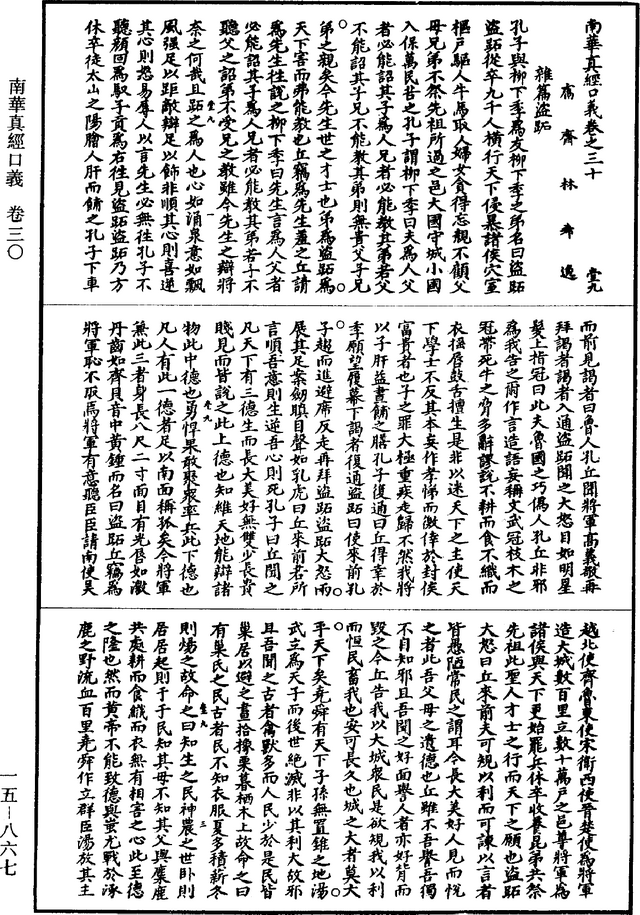 南華真經口義卷之三十
鬳齋林希逸　堂九
雜篇盜跖
孔子與柳下季為友柳下季之弟名曰盜跖
盜跖從卒九千人橫行天下侵暴諸侯穴室
樞戶驅人牛馬取人婦女貪得忘親不顧父
母兄弟不祭先祖所過之邑大國守城小國
入保萬民苦之孔子謂柳下季曰夫為人父
者必能詔其子為人兄者必能教其弟若父
不能詔其子兄不能教其弟則無貴父子兄
弟之親矣今先生世之才士也弟為盜跖為
天下害而弗能教也丘竊為先生羞之丘請
為先生往說之柳下季曰先生言為人父者
必能詔其子為人兄者必能教其弟若子不
聽父之詔弟不受兄之教雖今先生之辯將
堂九　一
奈之何哉且跖之為人也心如涌泉意如飄
風强足以距敵辯足以飾非順其心則喜逆
其心則怒易辱人以言先生必無往孔子不
聽顏回為馭子貢為右往見盜跖盜跖乃方
休卒徒太山之陽膾人肝而餔之孔子下車
而前見謁者曰魯人孔丘聞將軍高義敬再
拜謁者謁者入通盜跖聞之大怒目如明星
髮上指冠曰此夫魯國之巧偽人孔丘非邪
為我告之爾作言造語妄稱文武冠枝木之
冠帶死牛之脅多辭謬說不耕而食不織而
衣搖唇鼓舌擅生是非以迷天下之主使天
下學士不反其本妄作孝悌而儌倖於封侯
富貴者也子之罪大極重疾走歸不然我將
以子肝益晝餔之膳孔子復通曰丘得幸於
季願望履幕下謁者復通盜跖曰使來前孔
子趨而進避席反走再拜盜跖盜跖大怒兩
展其足案劒瞋目聲如乳虎曰丘來前若所
言順吾意則生逆吾心則死孔子曰丘聞之
凡天下有三德生而長大美好無雙少長貴
賤見而皆說之此上德也知維天地能辯諸
堂九
物此中德也勇悍果敢聚眾率兵此下德也
凡人有此一德者足以南面稱孤矣今將軍
兼此三者身長八尺二寸面目有光唇如激
丹齒如齊貝音中黃鍾而名曰盜跖丘竊為
將軍恥不取焉將軍有意聽臣臣請南使吳
越北使齊魯東使宋衞西使晉楚使為將軍
造大城數百里立數十萬戶之邑尊將軍為
諸侯與天下更始罷兵休卒收養昆弟共祭
先祖此聖人才士之行而天下之願也盜跖
大怒曰丘來前夫可規以利而可諫以言者
皆愚陋常民之謂耳今長大美好人見而悅
之者此吾父母之遺德也丘雖不吾譽吾獨
不自知邪且吾聞之好面譽人者亦好背而
毀之今丘告我以大城眾民是欲規我以利
而恒民畜我也安可長久也城之大者莫大
乎天下矣堯舜有天下子孫無置錐之地湯
武立為天子而後世絕滅非以其利大故邪
且吾聞之古者禽獸多而人民少於是民皆
巢居以避之晝拾橡栗暮栖木上故命之曰
有巢氏之民古者民不知衣服夏多積薪冬
堂九　三
則煬之故命之曰知生之民神農之世臥則
居居起則于于民知其母不知其父與麋鹿
共處耕而食織而衣無有相害之心此至德
之隆也然而黃帝不能致德與蚩尤戰於涿
鹿之野流血百里堯舜作立群臣湯放其主
南華真經口義　卷三〇
一五—八六七